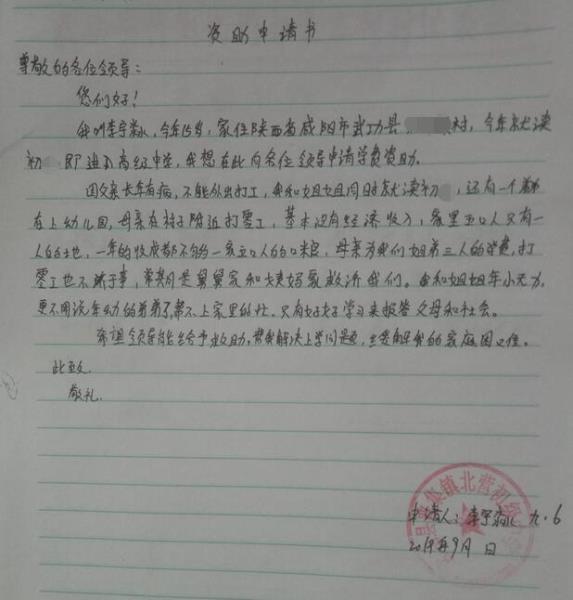 资助申请书
尊敬的各位领导：
您们好！
我叫李宇淼，今年15岁，家住陕西省咸阳市武功县 村，今年就读
初 ，即进入高级中学，我想在此向各位领导申请学费资助。
因父亲长年有病，不能外出打工，我和姐姐同时就读初 ，还有一个弟弟
在上幼儿园，母亲在村子附近打零工，基本没有经济收入，家里五口人只有一
人的土地，一年的收成都不够一家五口人的口粮，母亲为我们姐弟三人的学费，打
零工也不济于事，常期是舅舅家和大姨妈家救济我们。我和姐姐年小无力，
更不用说年幼的弟弟了，帮不上家里的忙，只有好好学习来报答父母和社会。
希望领导能给予救助，帮我解决上学问题，缓解我的家庭困难。
此致
敬礼
镇北营初级
申请人：李宇淼 九·6
2019年9月 日